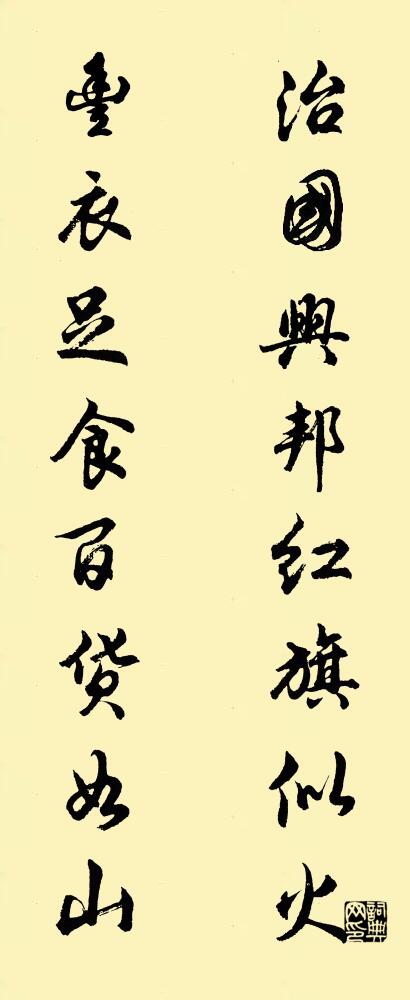 治國興邦红旗似火
豐衣足食百货如山
詞典网印